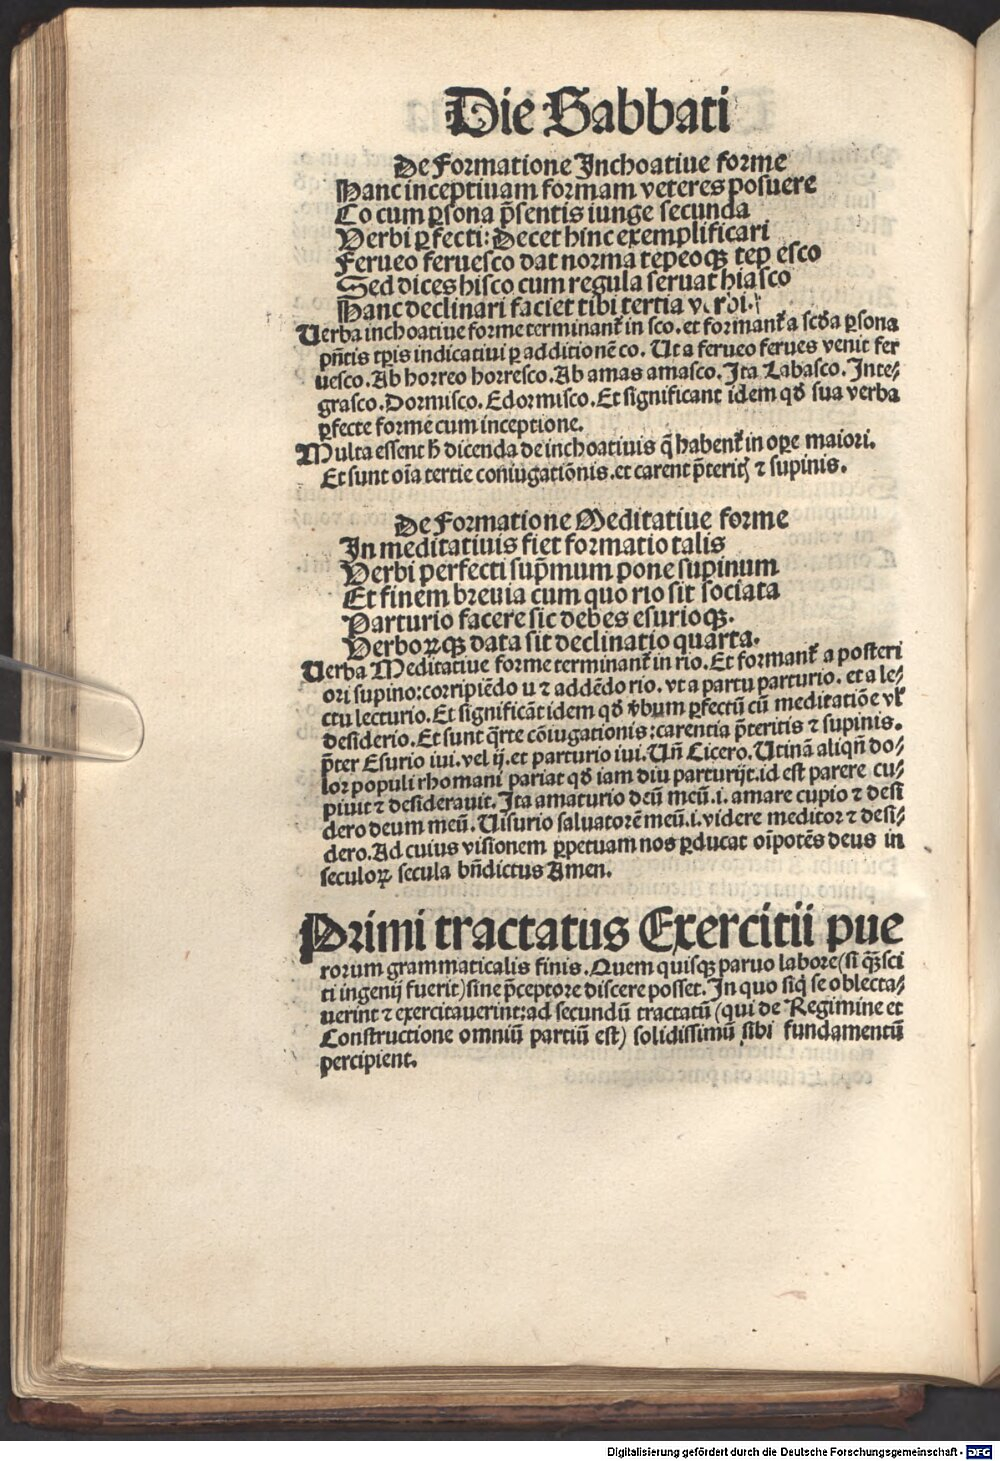 Die Sabbati
De Formatione Inchoatiue forme
Hanc inceptiuam formam veteres posuere
Co cum ꝑsona p̄sentis iunge secunda
Verbi ꝑfecti: Decet hinc exemplificari
Ferueo feruesco dat normā tepeoqꝫ tep esco
Sed dices hisco cum regula seruat hiasco
Hanc declinari faciet tibi tertia v rbi.
Uerba inchoatiue forme terminant᷑ in sco. et formant᷑ a scd̄a ꝑsona
pn̄tis tꝑis indicatiui ꝑ additionē co. Ut a ferueo ferues venit fer
uesco. Ab horreo horresco. Ab amas amasco. Ita Labasco. Inte⸗
grasco. Dormisco. Edormisco. Et significant idem qd̄ sua verba
ꝑfecte forme cum inceptione.
Multa essent h̄ dicenda de inchoatiuis q̄ habent᷑ in oꝑe maiori.
Et sunt oīa tertie coniugatiōnis. et carent p̄teritꝭ ⁊ supinis.
De Formatione Meditatiue forme
In meditatiuis fiet formatio talis
Verbi perfecti sup̄mum pone supinum
Et finem breuia cum quo rio sit sociata
Parturio facere sic debes esurioqꝫ.
Verboꝝqꝫ data sit declinatio quarta.
Uerba Meditatiue forme terminant᷑ in rio. Et formant᷑ a posteri
ori supino: corripiēdo u ⁊ addēdo rio. vt a partu parturio. et a le⸗
ctu lecturio. Et significāt idem qd̄ v̄bum ꝑfectū cū meditatiōe vl᷑
desiderio. Et sunt q̄rte cōiugationis: carentia p̄teritis ⁊ supinis.
p̄ter Esurio iui. vel ij. et parturio iui. Un̄ Cicero. Utinā aliqn̄ do⸗
lor populi rhomani pariat qd̄ iam diu parturijt. id est parere cu⸗
piuit ⁊ desiderauit. Ita amaturio deū meū .i. amare cupio ⁊ desi
dero deum meū. Uisurio saluatorē meū .i. videre meditor ⁊ desi⸗
dero. Ad cuius visionem ꝑpetuam nos ꝑducat oīpotēs deus in
seculoꝝ secula bn̄dictus Amen.
Primi tractatus Exercitii pue
rorum grammaticalis finis. Quem quisqꝫ paruo labore (si qꝫ̄ sci
ti ingenij fuerit) sine p̄ceptore discere posset. In quo siq̄ se oblecta⸗
uerint ⁊ exercitauerint: ad secundū tractatū (qui de Regimine et
Constructione omniū partiū est) solidissimū sibi fundamentū
percipient.
Digitalisierung gefördert durch die Deutsche Forschungsgemeinschaft - DFG